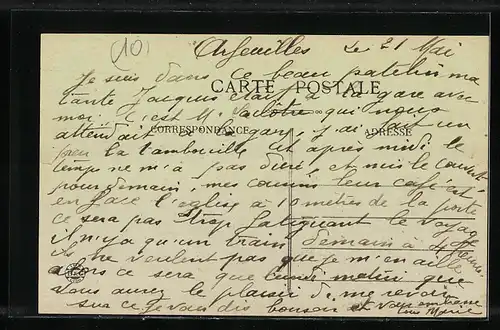 (10)
Arfeuilles le 21 Mai
Je suis dans ce beau patelin ma
CARTE POSTALE
tante Jacques était à la gare avec
moi, c'est Mr qui nous
attendait la gare, j'ai fait un
CORRESPONDANCE ADRESSE
peu la tambouille et après midi le
temps ne m'a pas duré, et mis le couvert
pour demain, mes cousins leur café est
en face l'église à 10 mètres de la porte
ce sera pas trop fatiguant le voyage
il n'y a qu'un train demain à 4 heures
ils ne veulent pas que je m'en aille
alors ce sera que lundi matin que
vous aurez le plaisir de me revoir
sur ce je vous dis bonsoir et vous embrasse
Marie